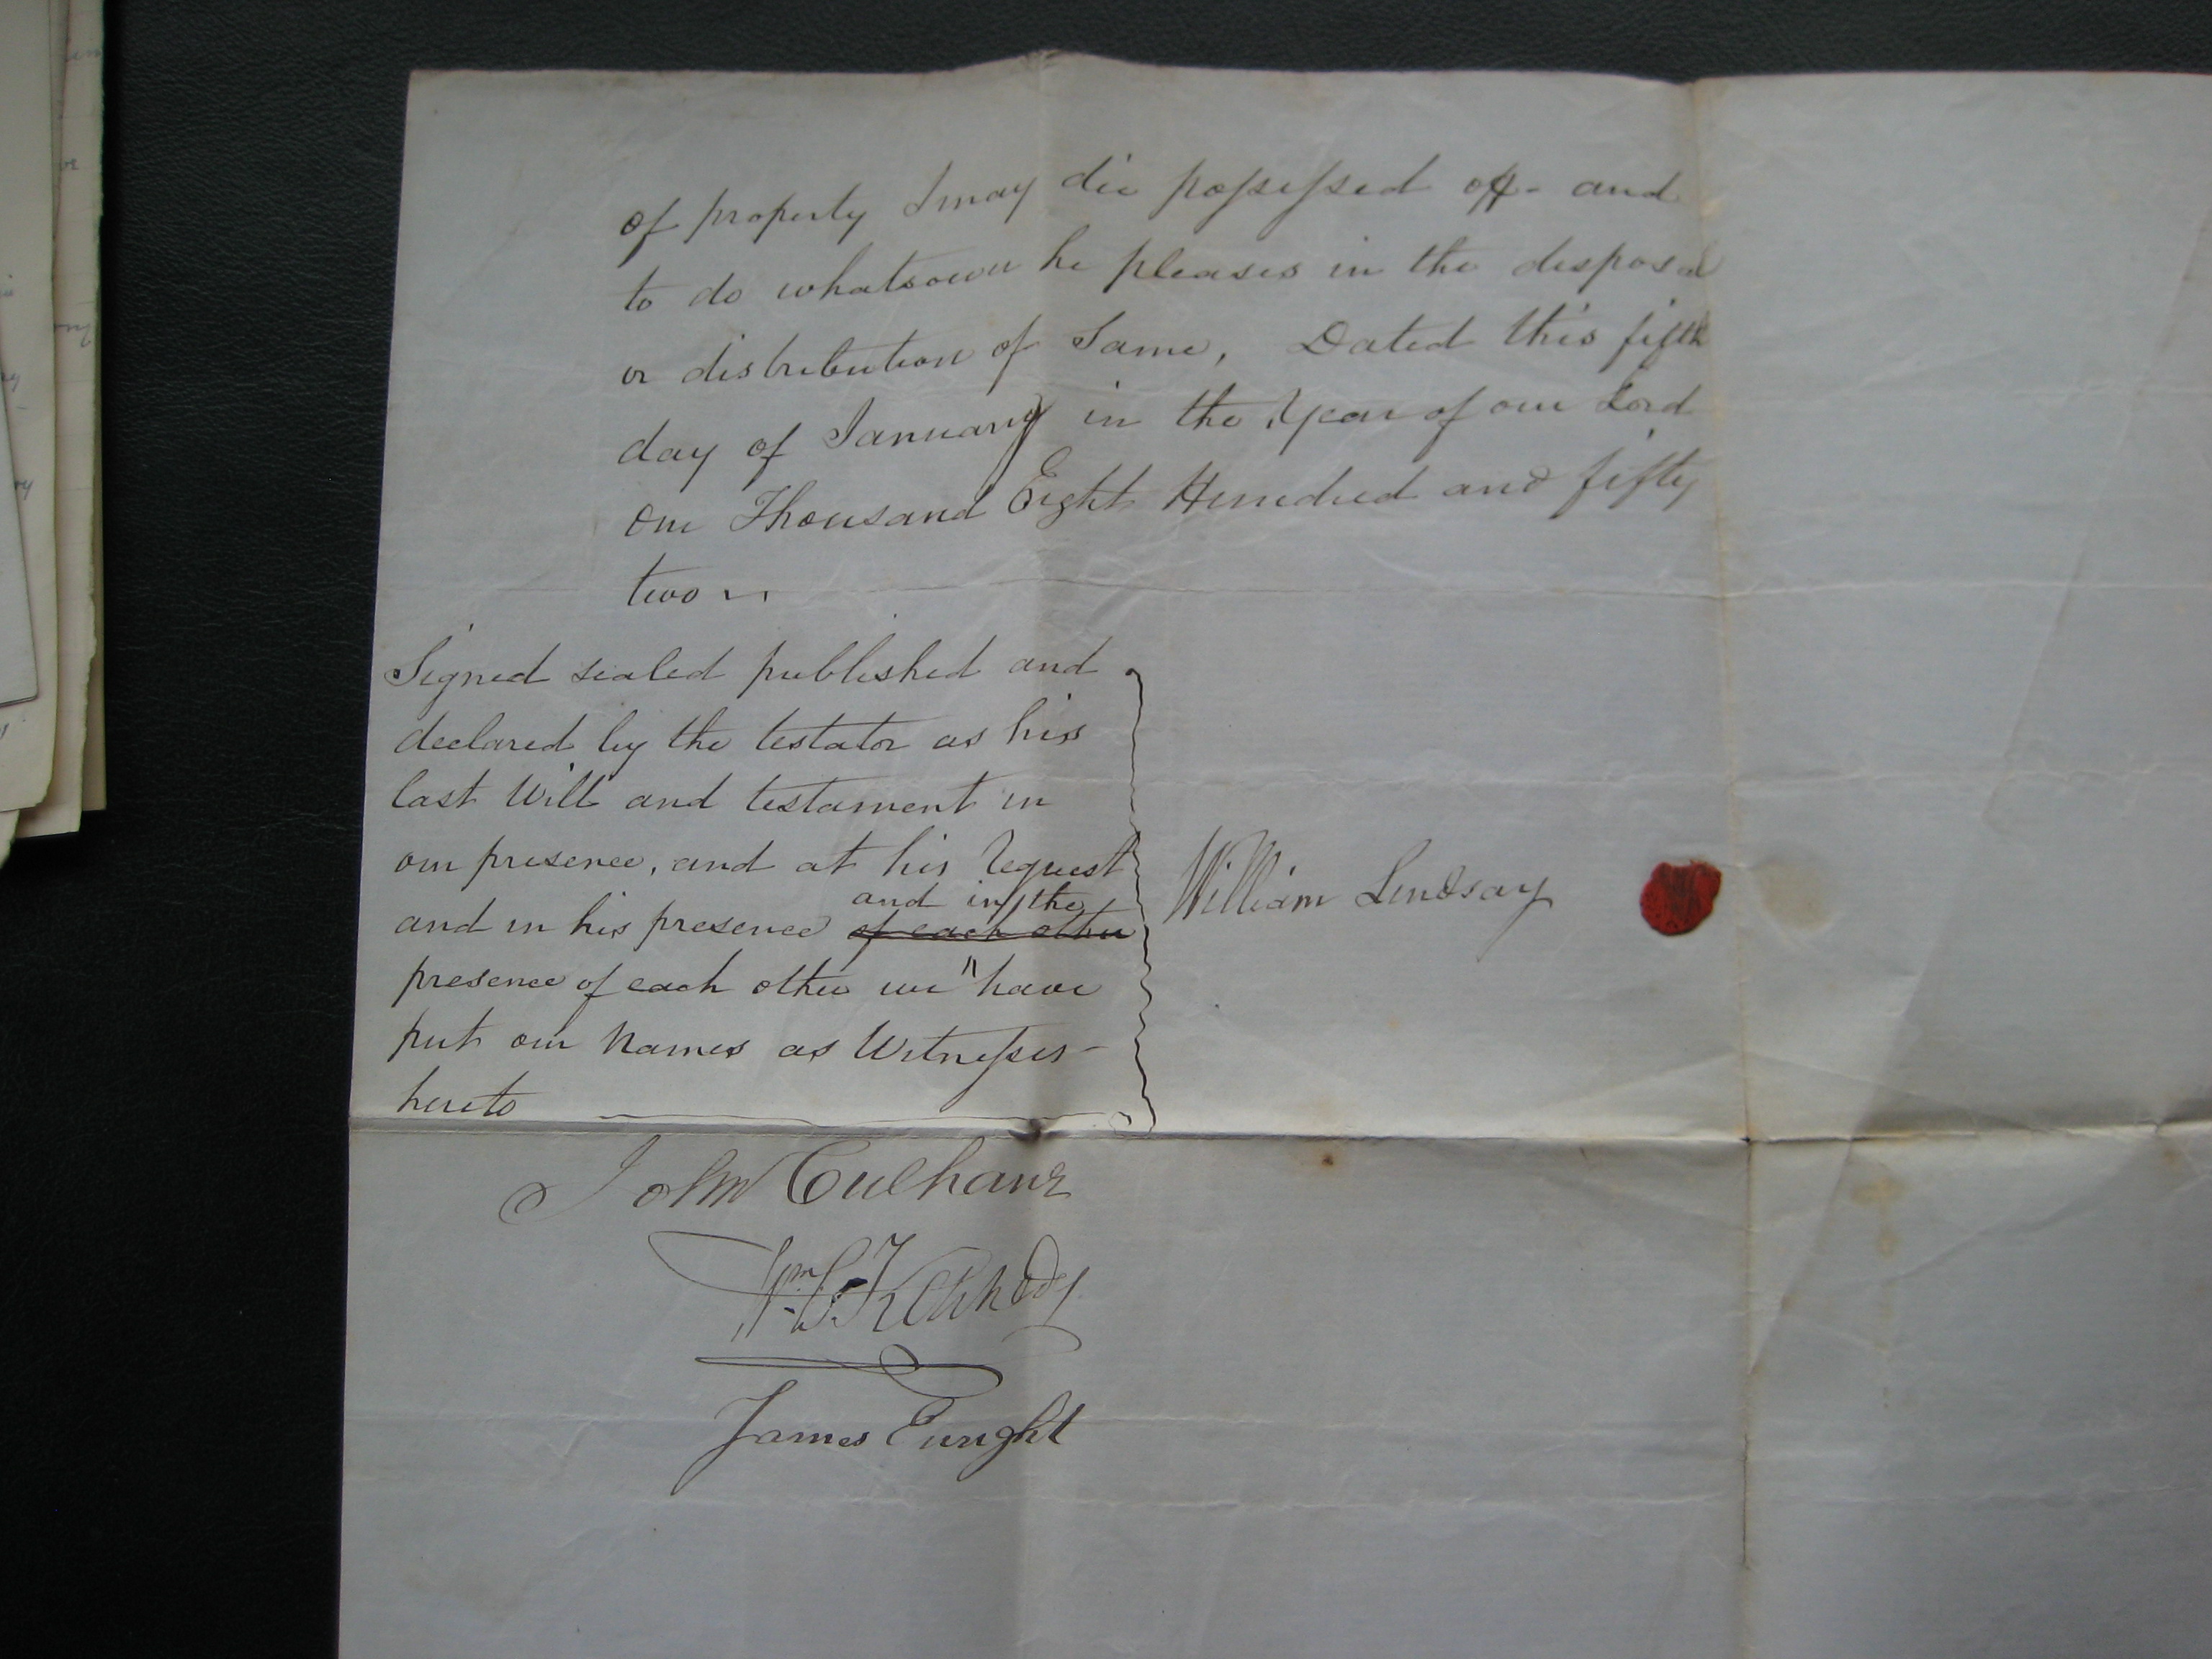 of property I may die possessed off - and
to do whatsoever he pleases in the disposal
or distribution of Same, Dated this fifth
day of January in the Year of our Lord
One Thousand Eight Hundred and fifty
two
Signed sealed published and
declared by the testator as his
last Will and testament in
our presence, and at his request
and in the
and in his presence of each other
presence of each other we " have
put our Names as Witnesses -
hereto
William Lindsay
John Culhane
Wm Kennedy
James Enright